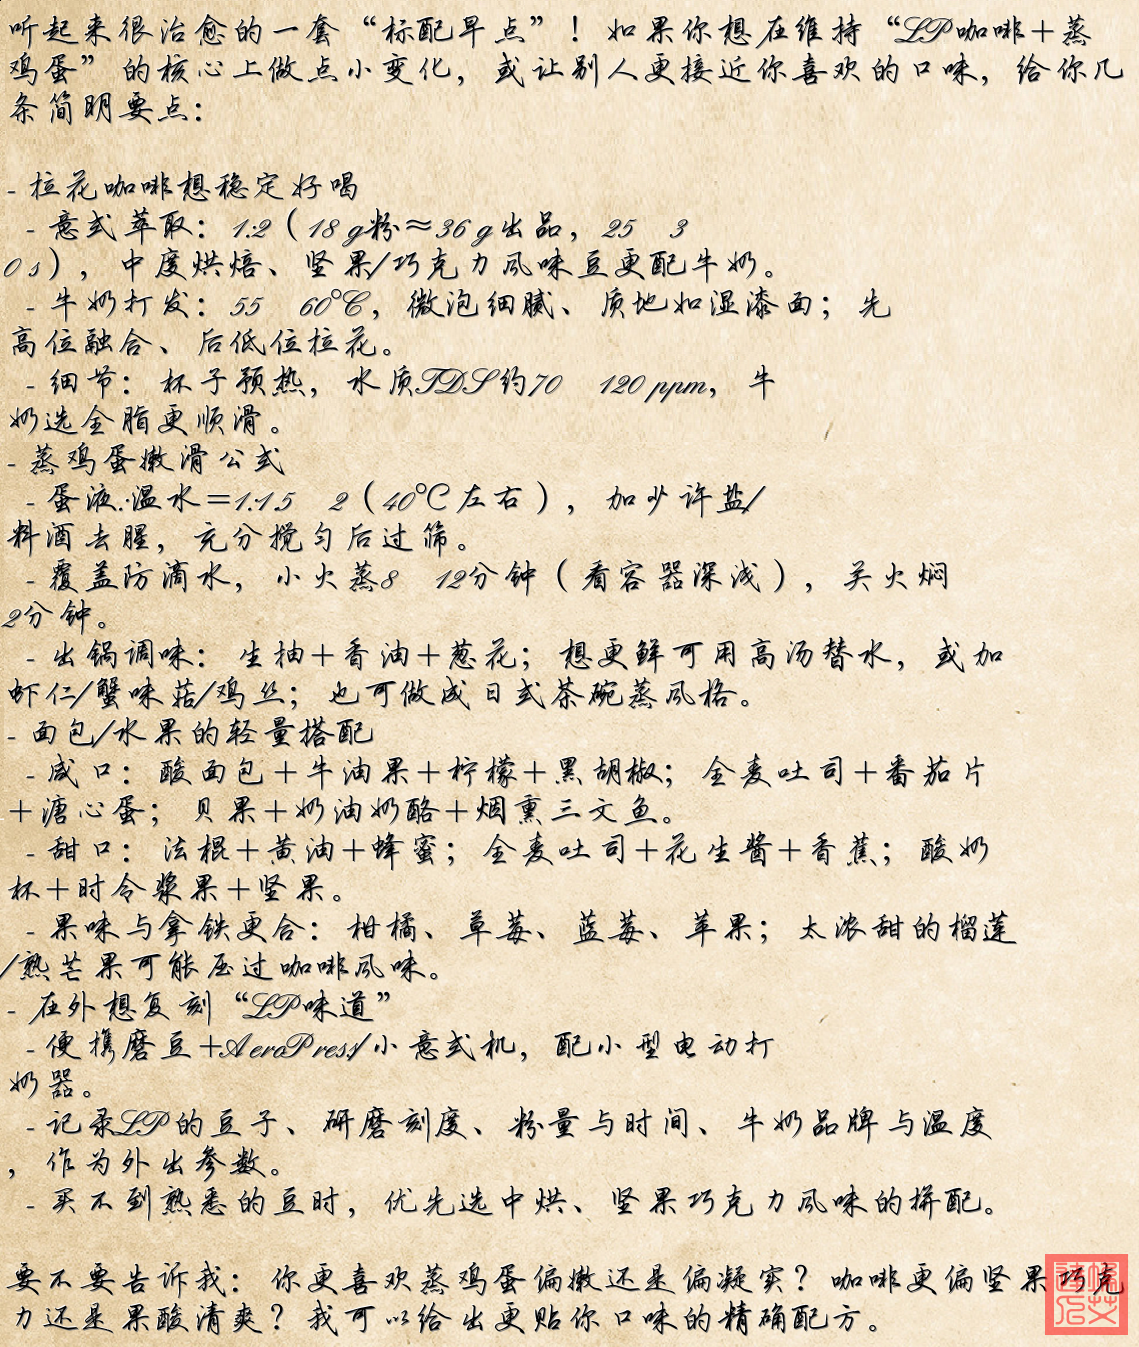 听起来很治愈的一套“标配早点”！如果你想在维持“LP咖啡+蒸
鸡蛋”的核心上做点小变化，或让别人更接近你喜欢的口味，给你几
条简明要点：
- 拉花咖啡想稳定好喝
- 意式萃取：1:2（18 g粉≈36 g出品，25 3
0 s），中度烘焙、坚果/巧克力风味豆更配牛奶。
- 牛奶打发：55 60℃，微泡细腻、质地如湿漆面；先
高位融合、后低位拉花。
- 细节：杯子预热，水质TDS约70 120 ppm，牛
奶选全脂更顺滑。
- 蒸鸡蛋嫩滑公式
- 蛋液:温水=1:1.5 2（40℃左右），加少许盐/
料酒去腥，充分搅匀后过筛。
- 覆盖防滴水，小火蒸8 12分钟（看容器深浅），关火焖
2分钟。
- 出锅调味：生抽+香油+葱花；想更鲜可用高汤替水，或加
虾仁/蟹味菇/鸡丝；也可做成日式茶碗蒸风格。
- 面包/水果的轻量搭配
- 咸口：酸面包+牛油果+柠檬+黑胡椒；全麦吐司+番茄片
+溏心蛋；贝果+奶油奶酪+烟熏三文鱼。
- 甜口：法棍+黄油+蜂蜜；全麦吐司+花生酱+香蕉；酸奶
杯+时令浆果+坚果。
- 果味与拿铁更合：柑橘、草莓、蓝莓、苹果；太浓甜的榴莲
/熟芒果可能压过咖啡风味。
- 在外想复刻“LP味道”
- 便携磨豆+AeroPress/小意式机，配小型电动打
奶器。
- 记录LP的豆子、研磨刻度、粉量与时间、牛奶品牌与温度
，作为外出参数。
- 买不到熟悉的豆时，优先选中烘、坚果巧克力风味的拼配。
要不要告诉我：你更喜欢蒸鸡蛋偏嫩还是偏凝实？咖啡更偏坚果巧克
力还是果酸清爽？我可以给出更贴你口味的精确配方。